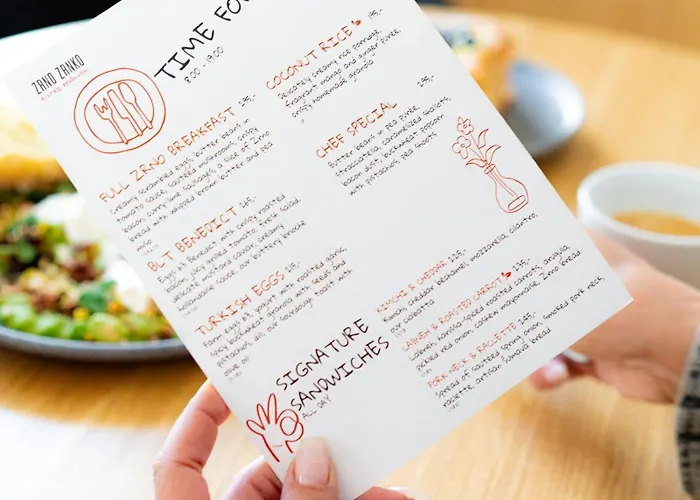 ZRNO ZRNKO
TIME FO
8:00 - 19:00
FULL ZRNO BREAKFAST 295,-
Creamy scrambled eggs, butter beans in
tomato sauce, sautéed mushrooms, crispy
bacon, curry lime sausages, a slice of Zrno
bread with whipped brown butter and pea
miso
BLT BENEDICT 265,-
Eggs 63 Benedict with crispy roasted
bacon, juicy grilled tomato, fresh salad,
delicate mustard caviar, creamy
hollandaise sauce, our buttery brioche
TURKISH EGGS 215,-
Farm eggs 63, yogurt with roasted garlic,
spicy buckwheat granola with seeds and
pistachios, dill, our sourdough toast with
olive oil
COCONUT RICE 175,-
Delicately creamy rice porridge,
fragrant mango and ginger purée,
crispy homemade granola
CHEF SPECIAL 235,-
Butter beans in pea purée,
stracciatella, caramelized shallots,
bacon dust, buckwheat popcorn
with pistachios, pea shoots
SIGNATURE
SANDWICHES
ALL DAY
KIMCHI & CHEDDAR 225,-
Kimchi, cheddar bechamel, mozzarella, cilantro,
our ciabatta
LABNEH & ROASTED CARROT 215,-
Labneh, harissa-spiced roasted carrots, arugula,
pickled red onion, cashew mayonnaise, Zrno bread
PORK NECK & RACLETTE 245,-
Spread of sautéed spring onion, smoked pork neck,
raclette, artisan Šumava bread